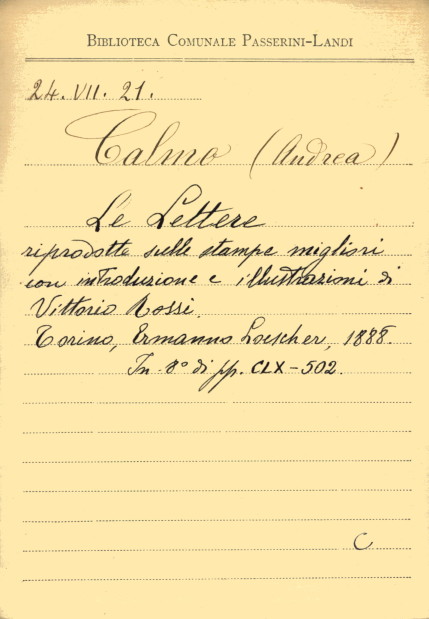 BIBLIOTECA COMUNALE PASSERINI-LANDI
24. VII. 21.
Calmo (Andrea)
Le Lettere
riprodotte sulle stampe migliori
con introduzione e illustrazioni di
Vittorio Rossi.
Torino, Ermanno Loescher, 1888.
In-8° di pp. CLX-502.
C